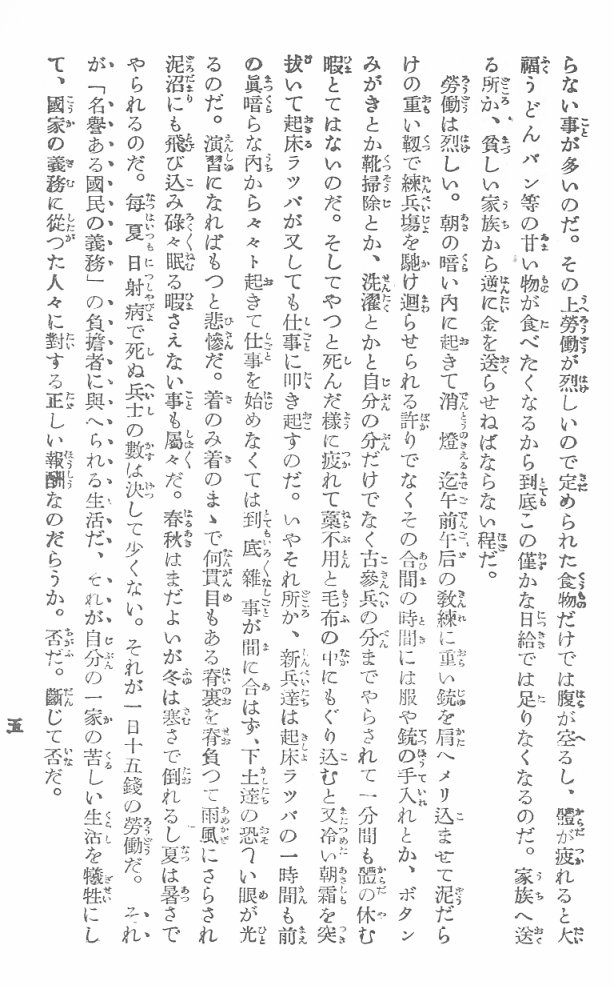 らない事が多いのだ。その上勞働が烈しいので定められた食物だけでは腹が空るし、體が疲れると大
福うどんパン等の甘い物が食べたくなるから到底この僅かな日給では足りなくなるのだ。家族へ送
る所か、貧しい家族から逆に金を送らせねばならない程だ。
勞働は烈しい。朝の暗い内に起きて消燈迄午前午后の教練に重い銃を肩へメリ込ませて泥だら
けの重い靱で練兵塲を馳け廻らせられる許りでなくその合間の時間には服や銃の手入れとか、ボタン
みがきとか靴掃除とか、洗濯とかと自分の分だけでなく古參兵の分までやらされて一分間も體の休む
暇とてはないのだ。そしてやつと死んだ樣に疲れて藁不用と毛布の中にもぐり込むと又冷い朝霜を突
拔いて起床ラッパが又しても仕事に叩き起すのだ。いやそれ所か、新兵達は起床ラッパの一時間も前
の眞暗らな內から々々ト起きて仕事を始めなくては到底雜事が間に合はず、下士達の恐〳〵い眼が光
るのだ。演習になればもつと悲慘だ。着のみ着のまゝで何貫目もある脊裏を脊負つて雨風にさらされ
泥沼にも飛び込み碌々眠る暇さえない事も屬々だ。春秋はまだよいが冬は寒さで倒れるし夏は暑さで
やられるのだ。每夏日射病で死ぬ兵士の數は決して少くない。それが一日十五錢の勞働だ。それ
が「名譽ある國民の義務」の負擔者に與へられる生活だ、それが自分の一家の苦しい生活を犧牲にし
て、國家の義務に從つた人々に對する正しい報酬なのだらうか。否だ。斷じて否だ。
五